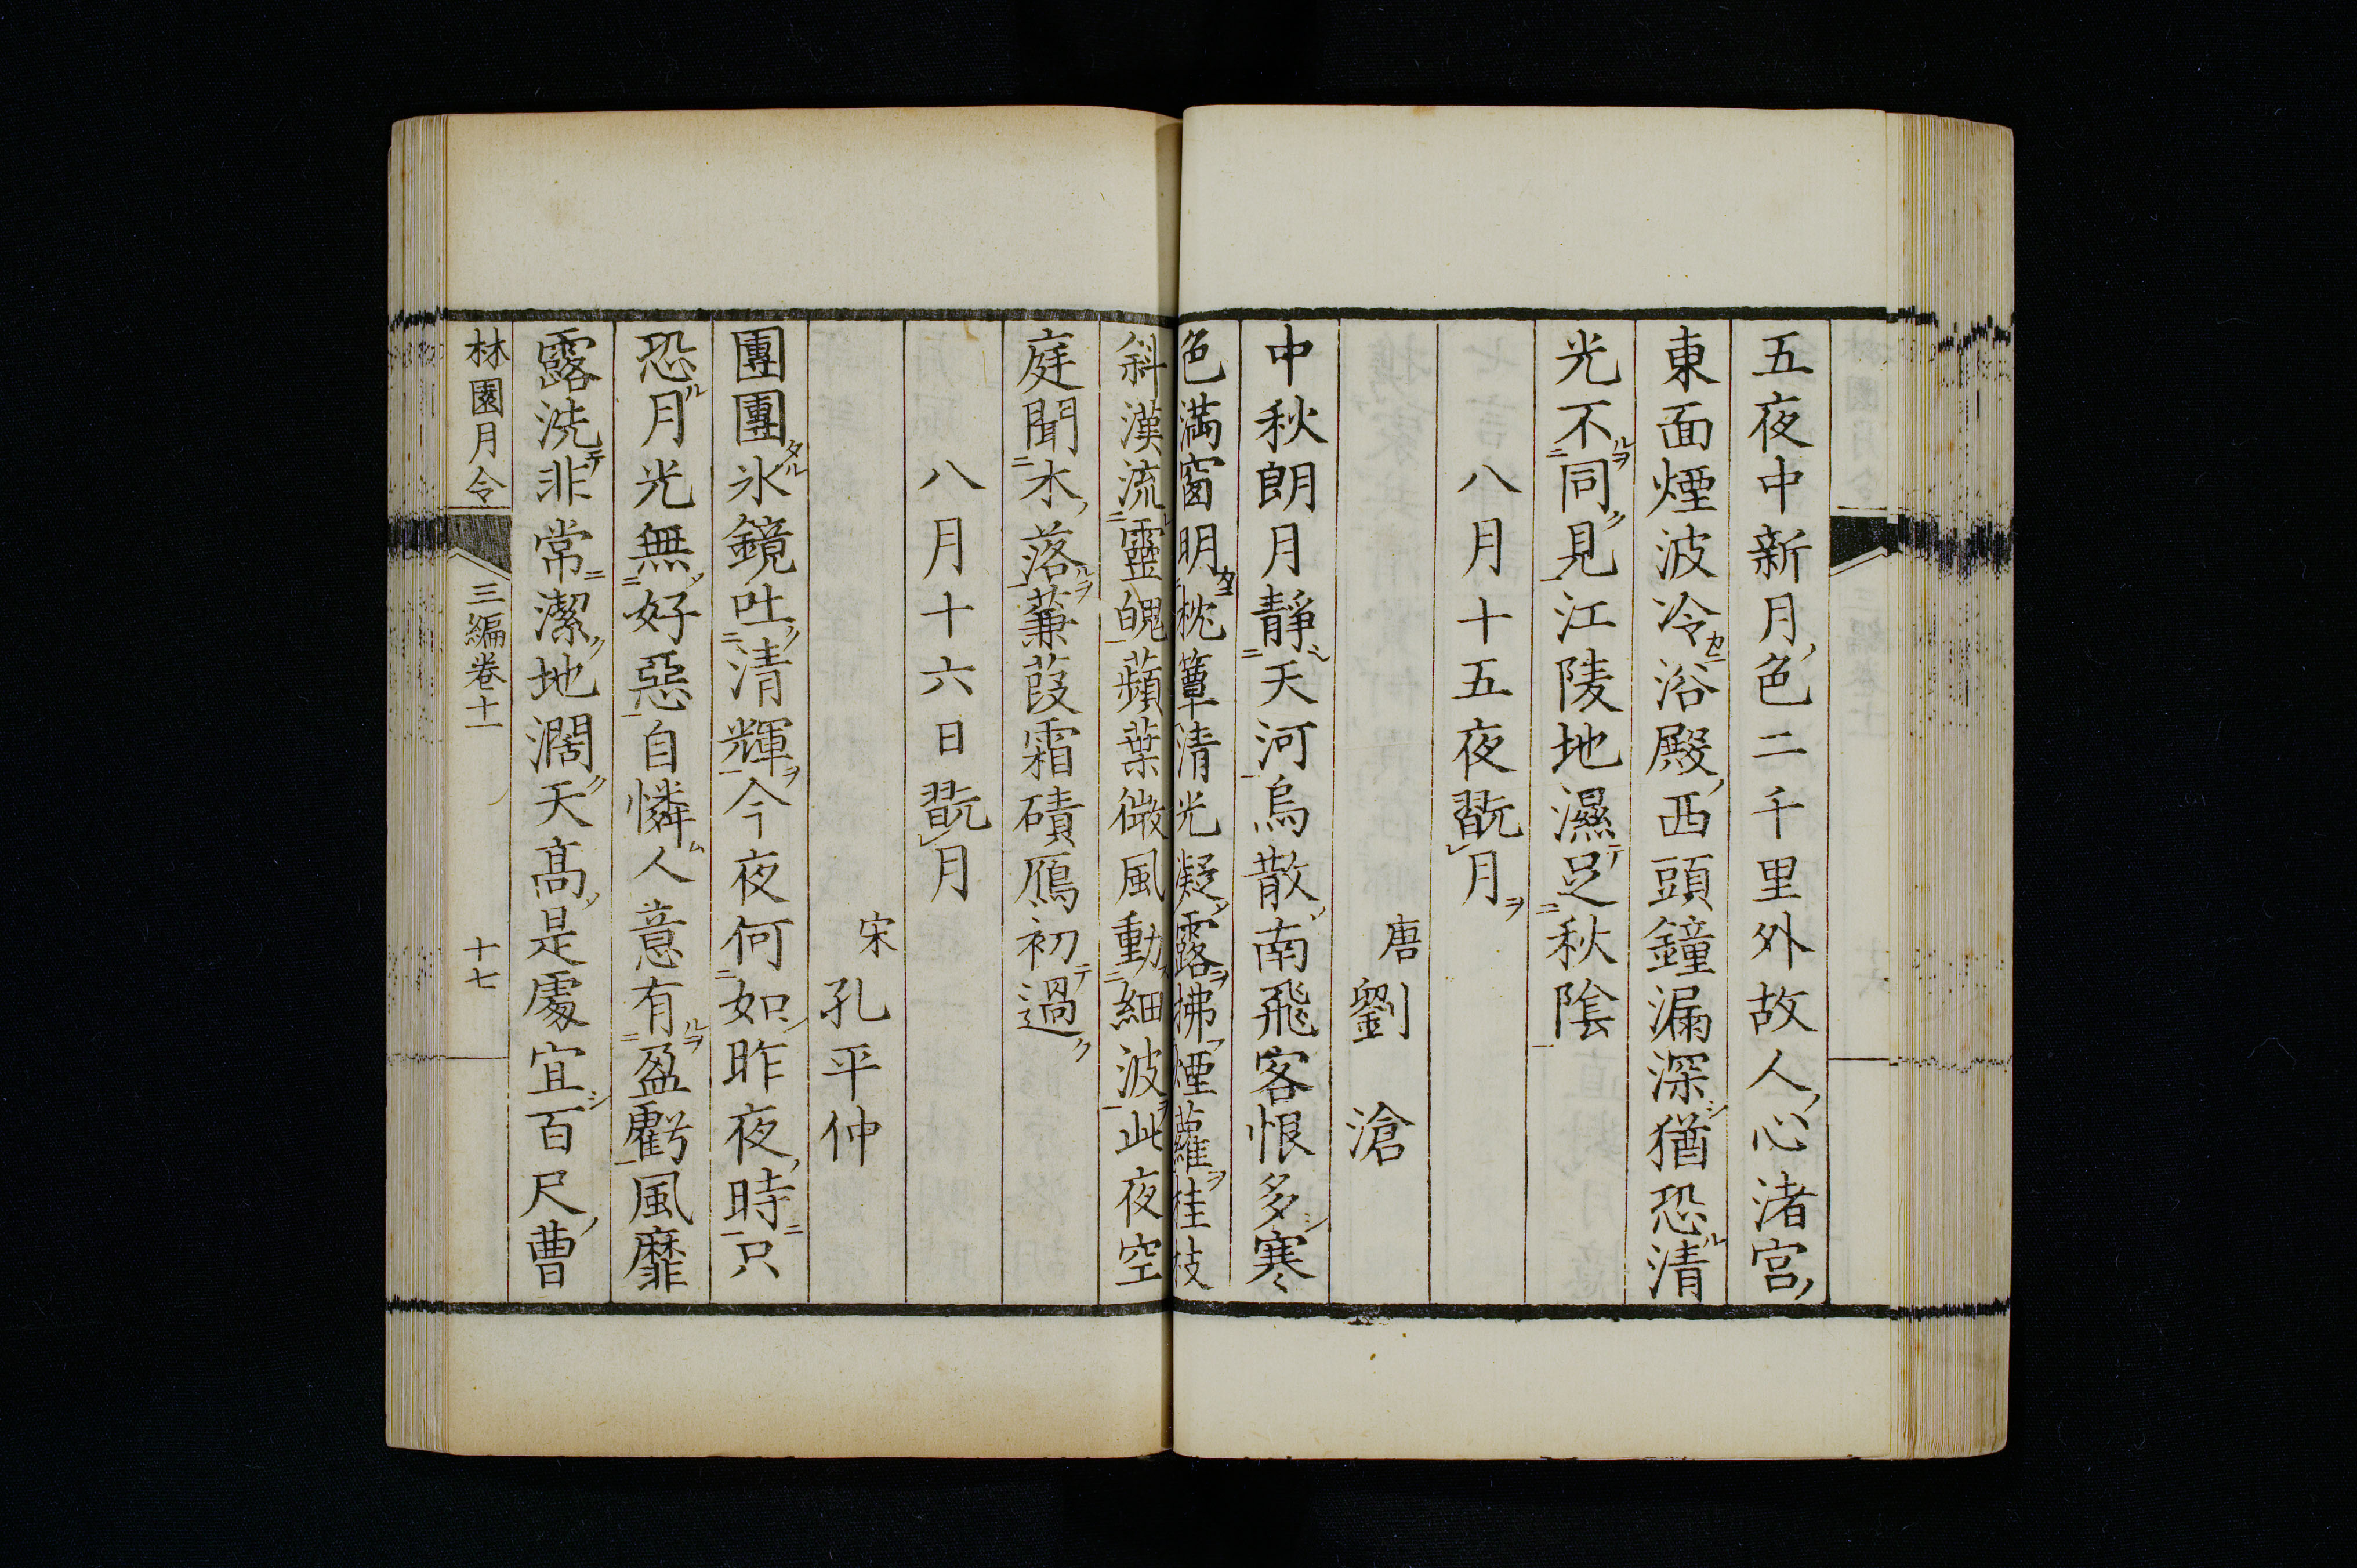 五夜中新月色二千里外故人心渚宮
東面煙波冷浴殿西頭鐘漏深猶恐清
光不同見江陵地濕足秋陰
八月十五夜翫月
唐劉滄
中秋朗月靜天河烏散南飛客恨多寒
色滿窗明枕簟清光凝露拂煙蘿桂枝
斜漢流靈魄蘋葉微風動細波此夜空
庭聞木落蒹葭霜磧鴈初過
八月十六日翫月
宋孔平仲
團團氷鏡吐清輝今夜何如昨夜時只
恐月光無好惡自憐人意有盈虧風靡
露洗非常潔地濶天髙是處宜百尺曹
林園月令
三編卷十一
十七